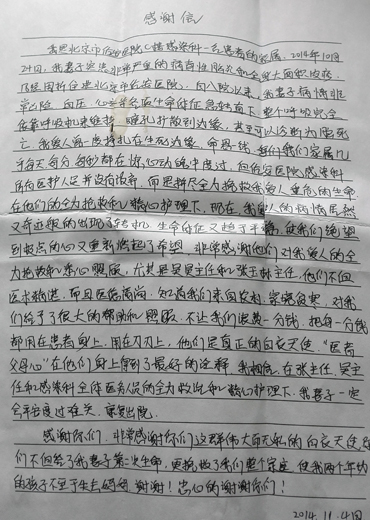 感谢信
我是北京市佑安医院感染科一名患者的家属，2014年10月
24日，我妻子突患非常严重的病毒性脑炎和全身大面积皮疹，
入院以来，我妻子病情非
常危险，血压、心率等各项生命体征急转直下，整个呼吸完全
依靠呼吸机来维持，瞳孔扩散到边缘，甚至可以诊断为脑死
亡，我爱人一度挣扎在生死边缘，命悬一线，
乎每天每分每秒都在揪心动魄中度过，
所有医护人员并没有放弃，而是拼尽全力抢救我爱人垂危的生命
在他们的全力抢救和精心护理下，现在，我爱人的病情居然
又奇迹般的出现了转机，生命体征又趋于平稳，使我们绝望
到极点的心又重新燃起了希望，非常感谢他们对我爱人的全
力抢救和悉心照顾，尤其是吴主任和张主任，他们不但
医术精湛，而且医德高尚，知道我们来自农村，家境贫寒，对我
们给予了很大的帮助和照顾，不让我们浪费一分钱，把每一分钱
都用在患者身上，用在刀刃上，他们是真正的白衣天使，“医者
父母心”在他们身上得到了最好的诠释，我相信，在张主任，吴主
任和感染科全体医务人员的全力救治和精心护理下，我妻子一定
会平安度过难关，康复出院。
感谢你们，非常感谢你们这群伟大而无私的白衣天使，
们不但给了我妻子第二次生命，更挽救了我们整个家庭，使我两个年幼
的孩子不至于失去妈妈，谢谢！衷心的谢谢你们！
2014.11.4日